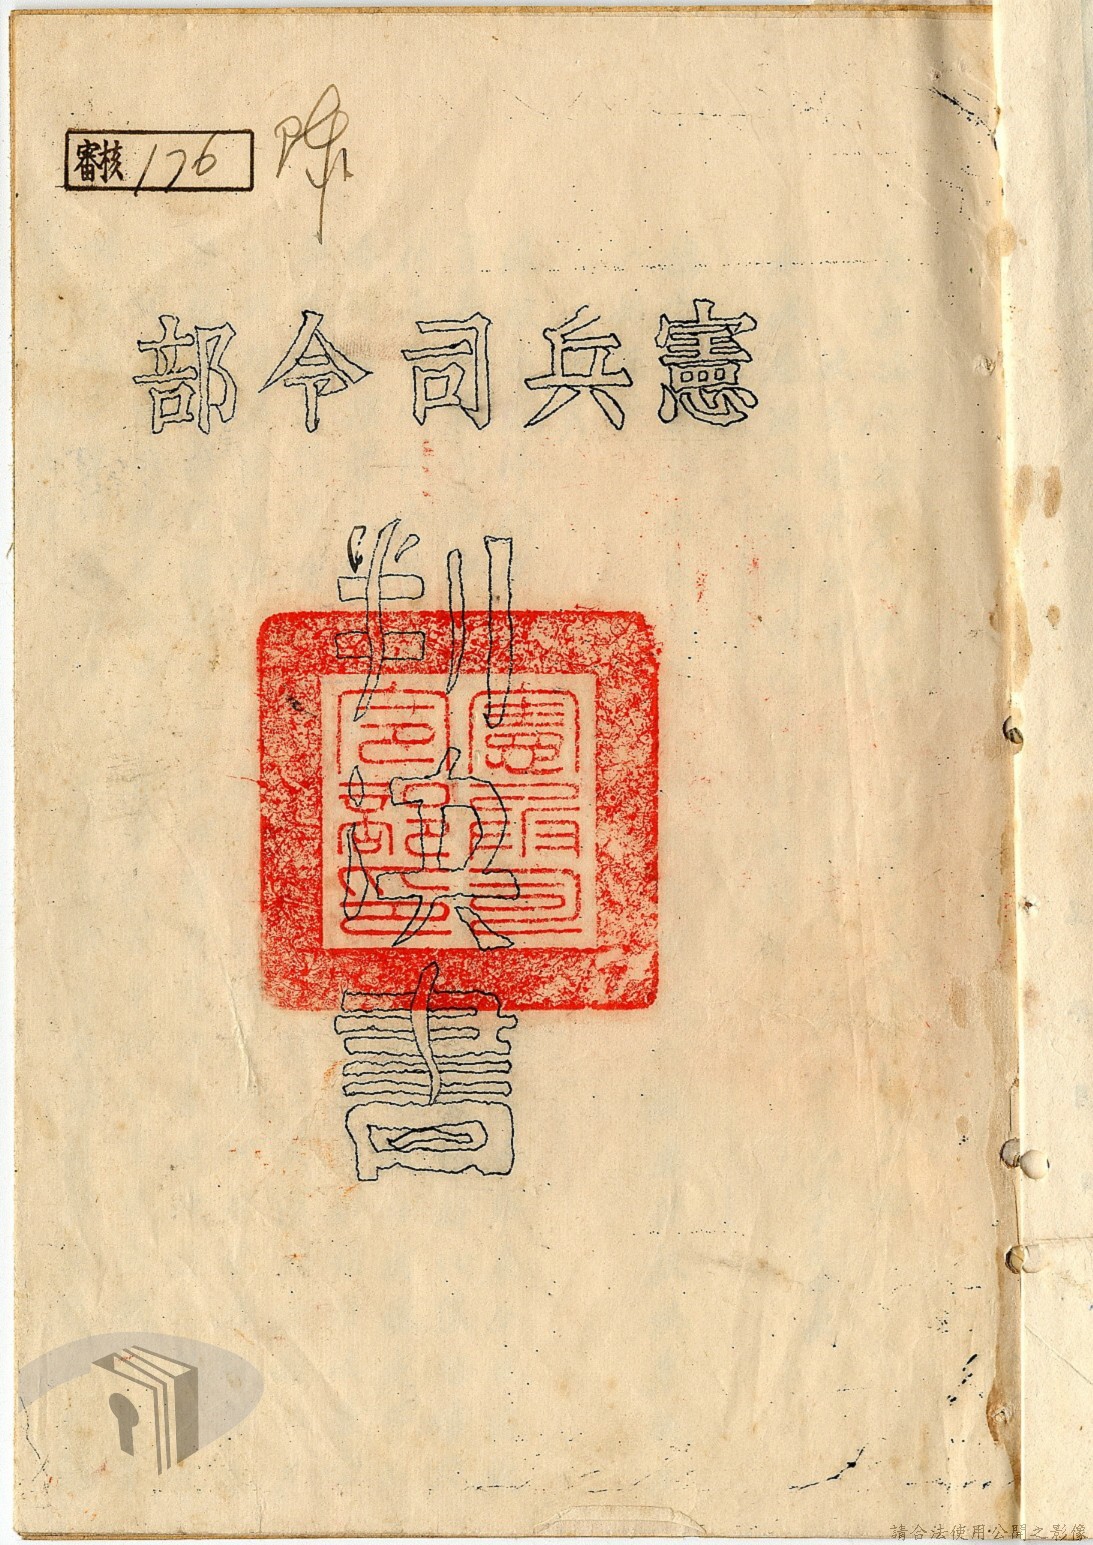 審核 176
陳
憲兵司令部
判決書
憲兵司令部印
請合法使用公開之影像